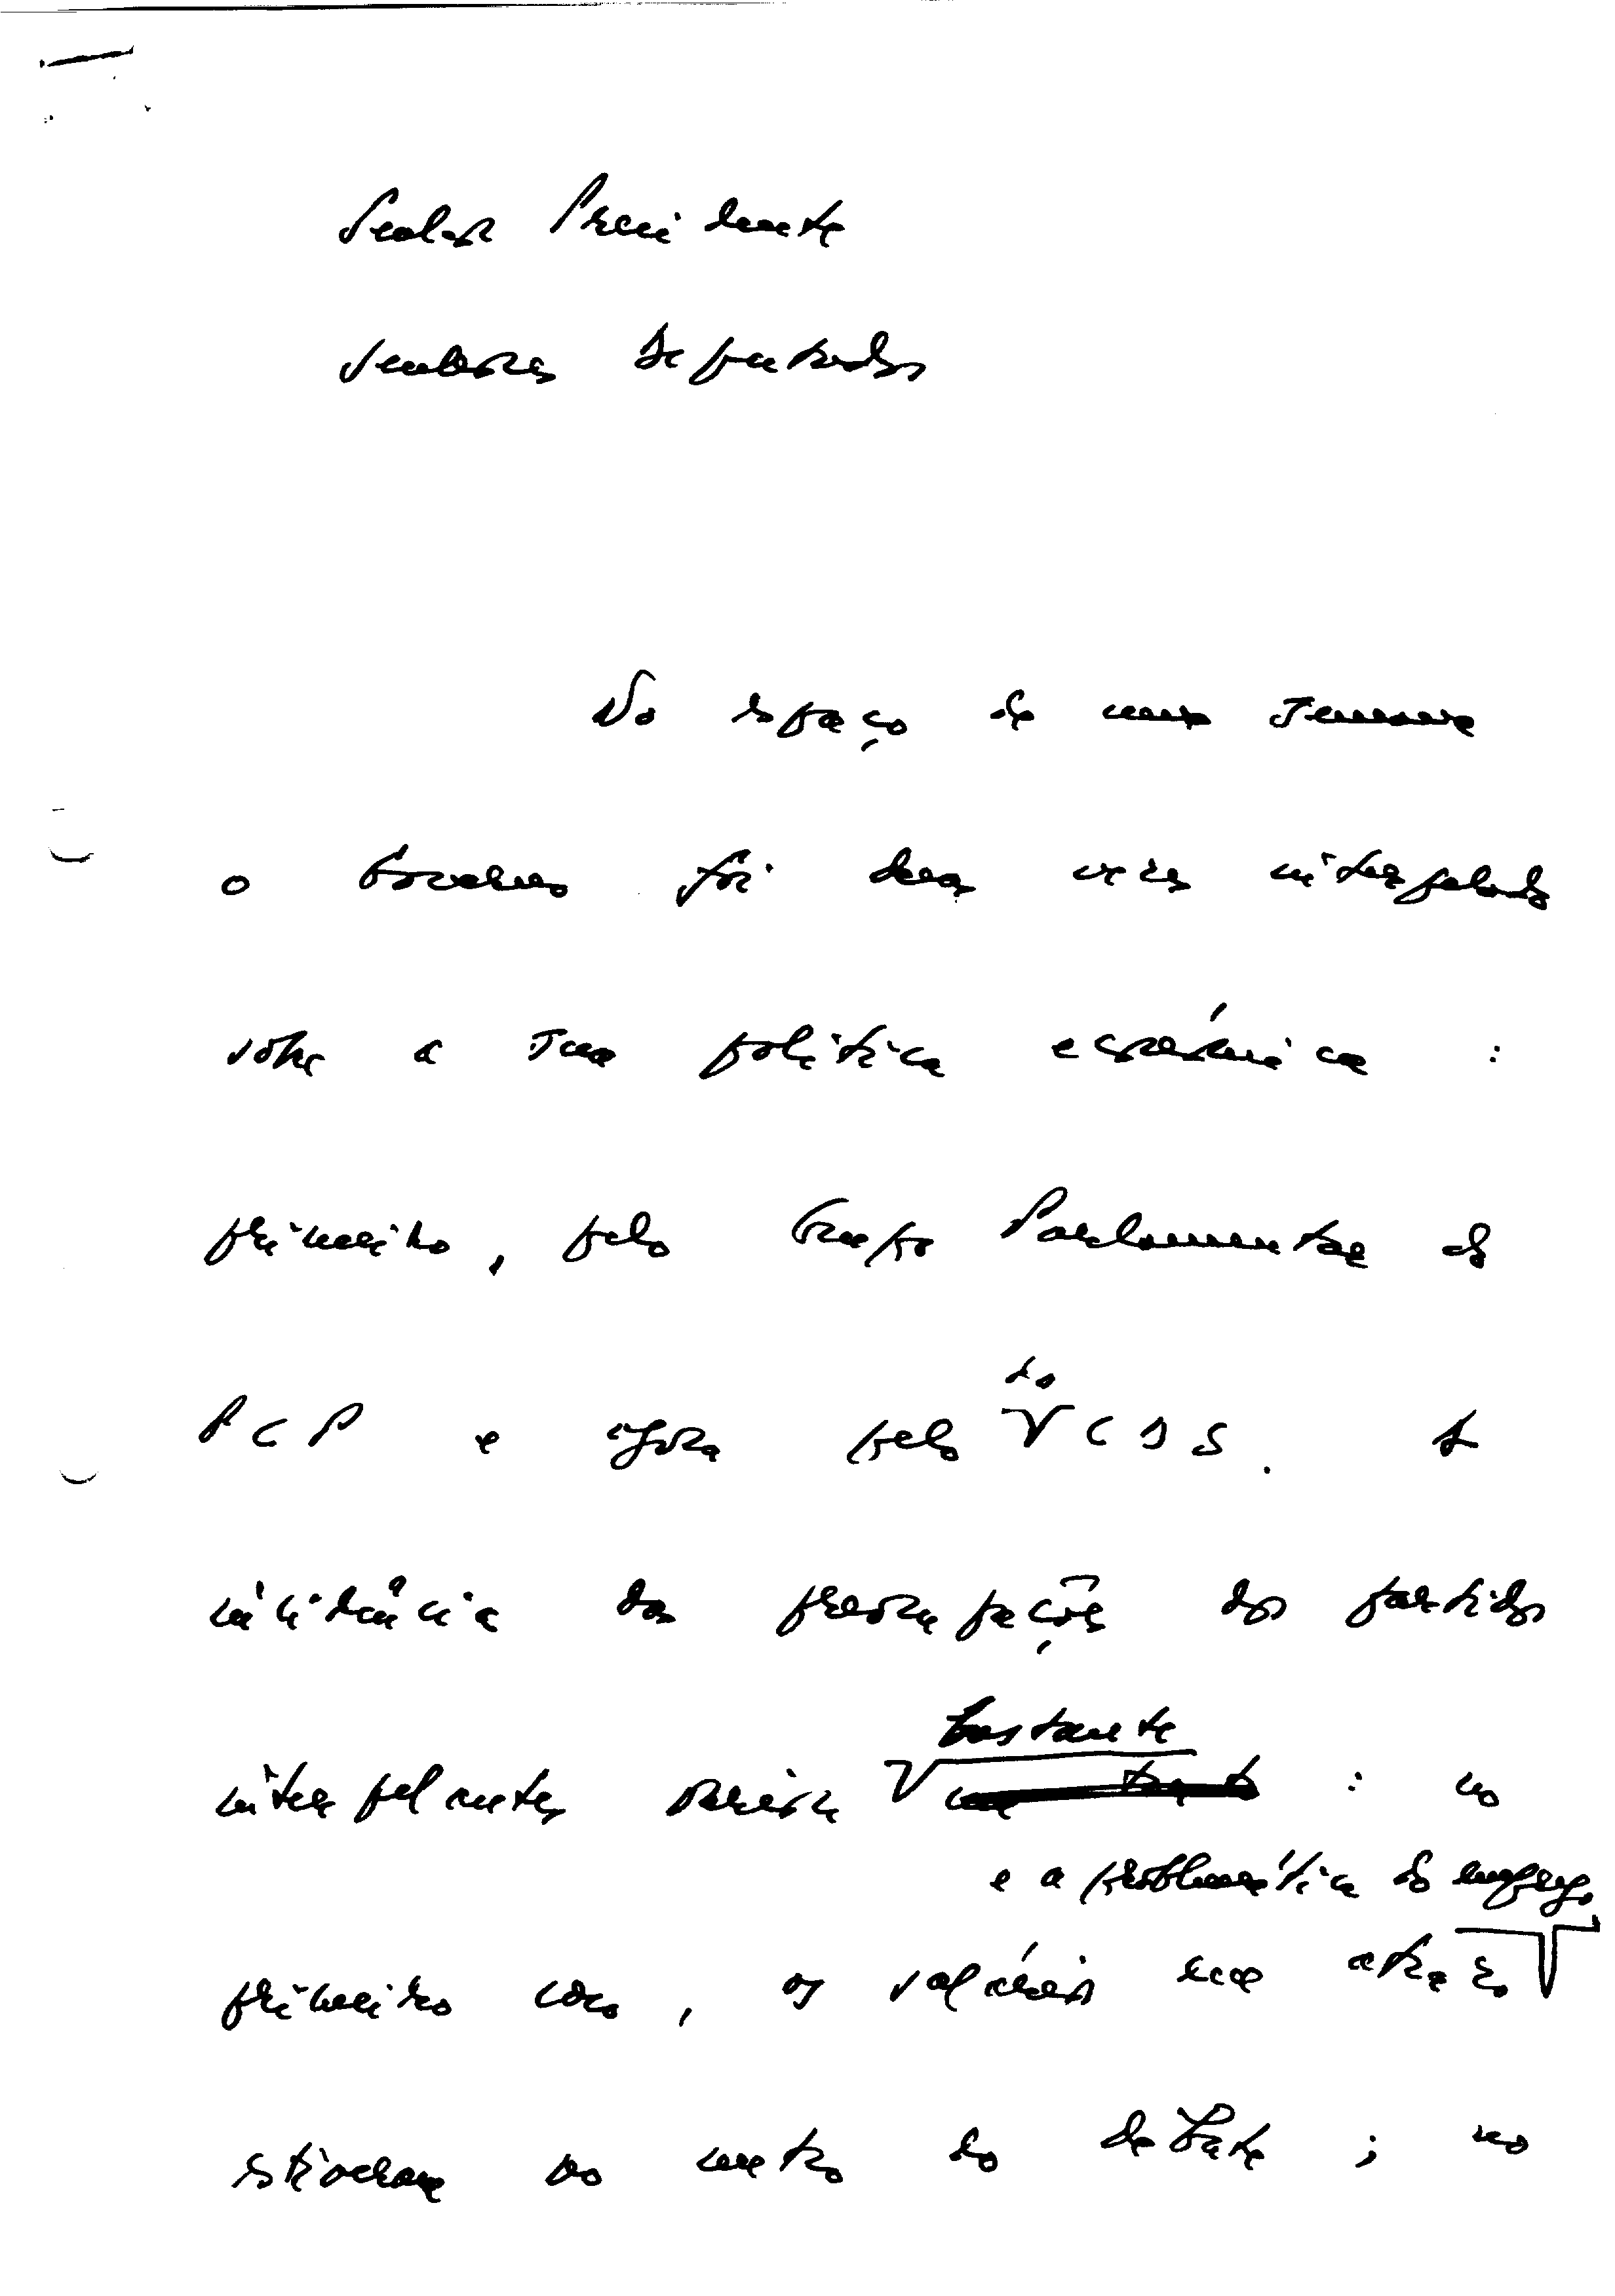 Senhor Presidente
Senhores Deputados
No espaço de uma semana
o Governo foi duas vezes interpelado
sobre a sua política económica :
primeiro, pelo Grupo Parlamentar do
PCP e agora pelo do CDS. A
incidência das preocupações dos partidos
interpelantes variou bastante : no
e a problemática do emprego
primeiro caso, os salários em atraso
estiveram no centro do debate ; no